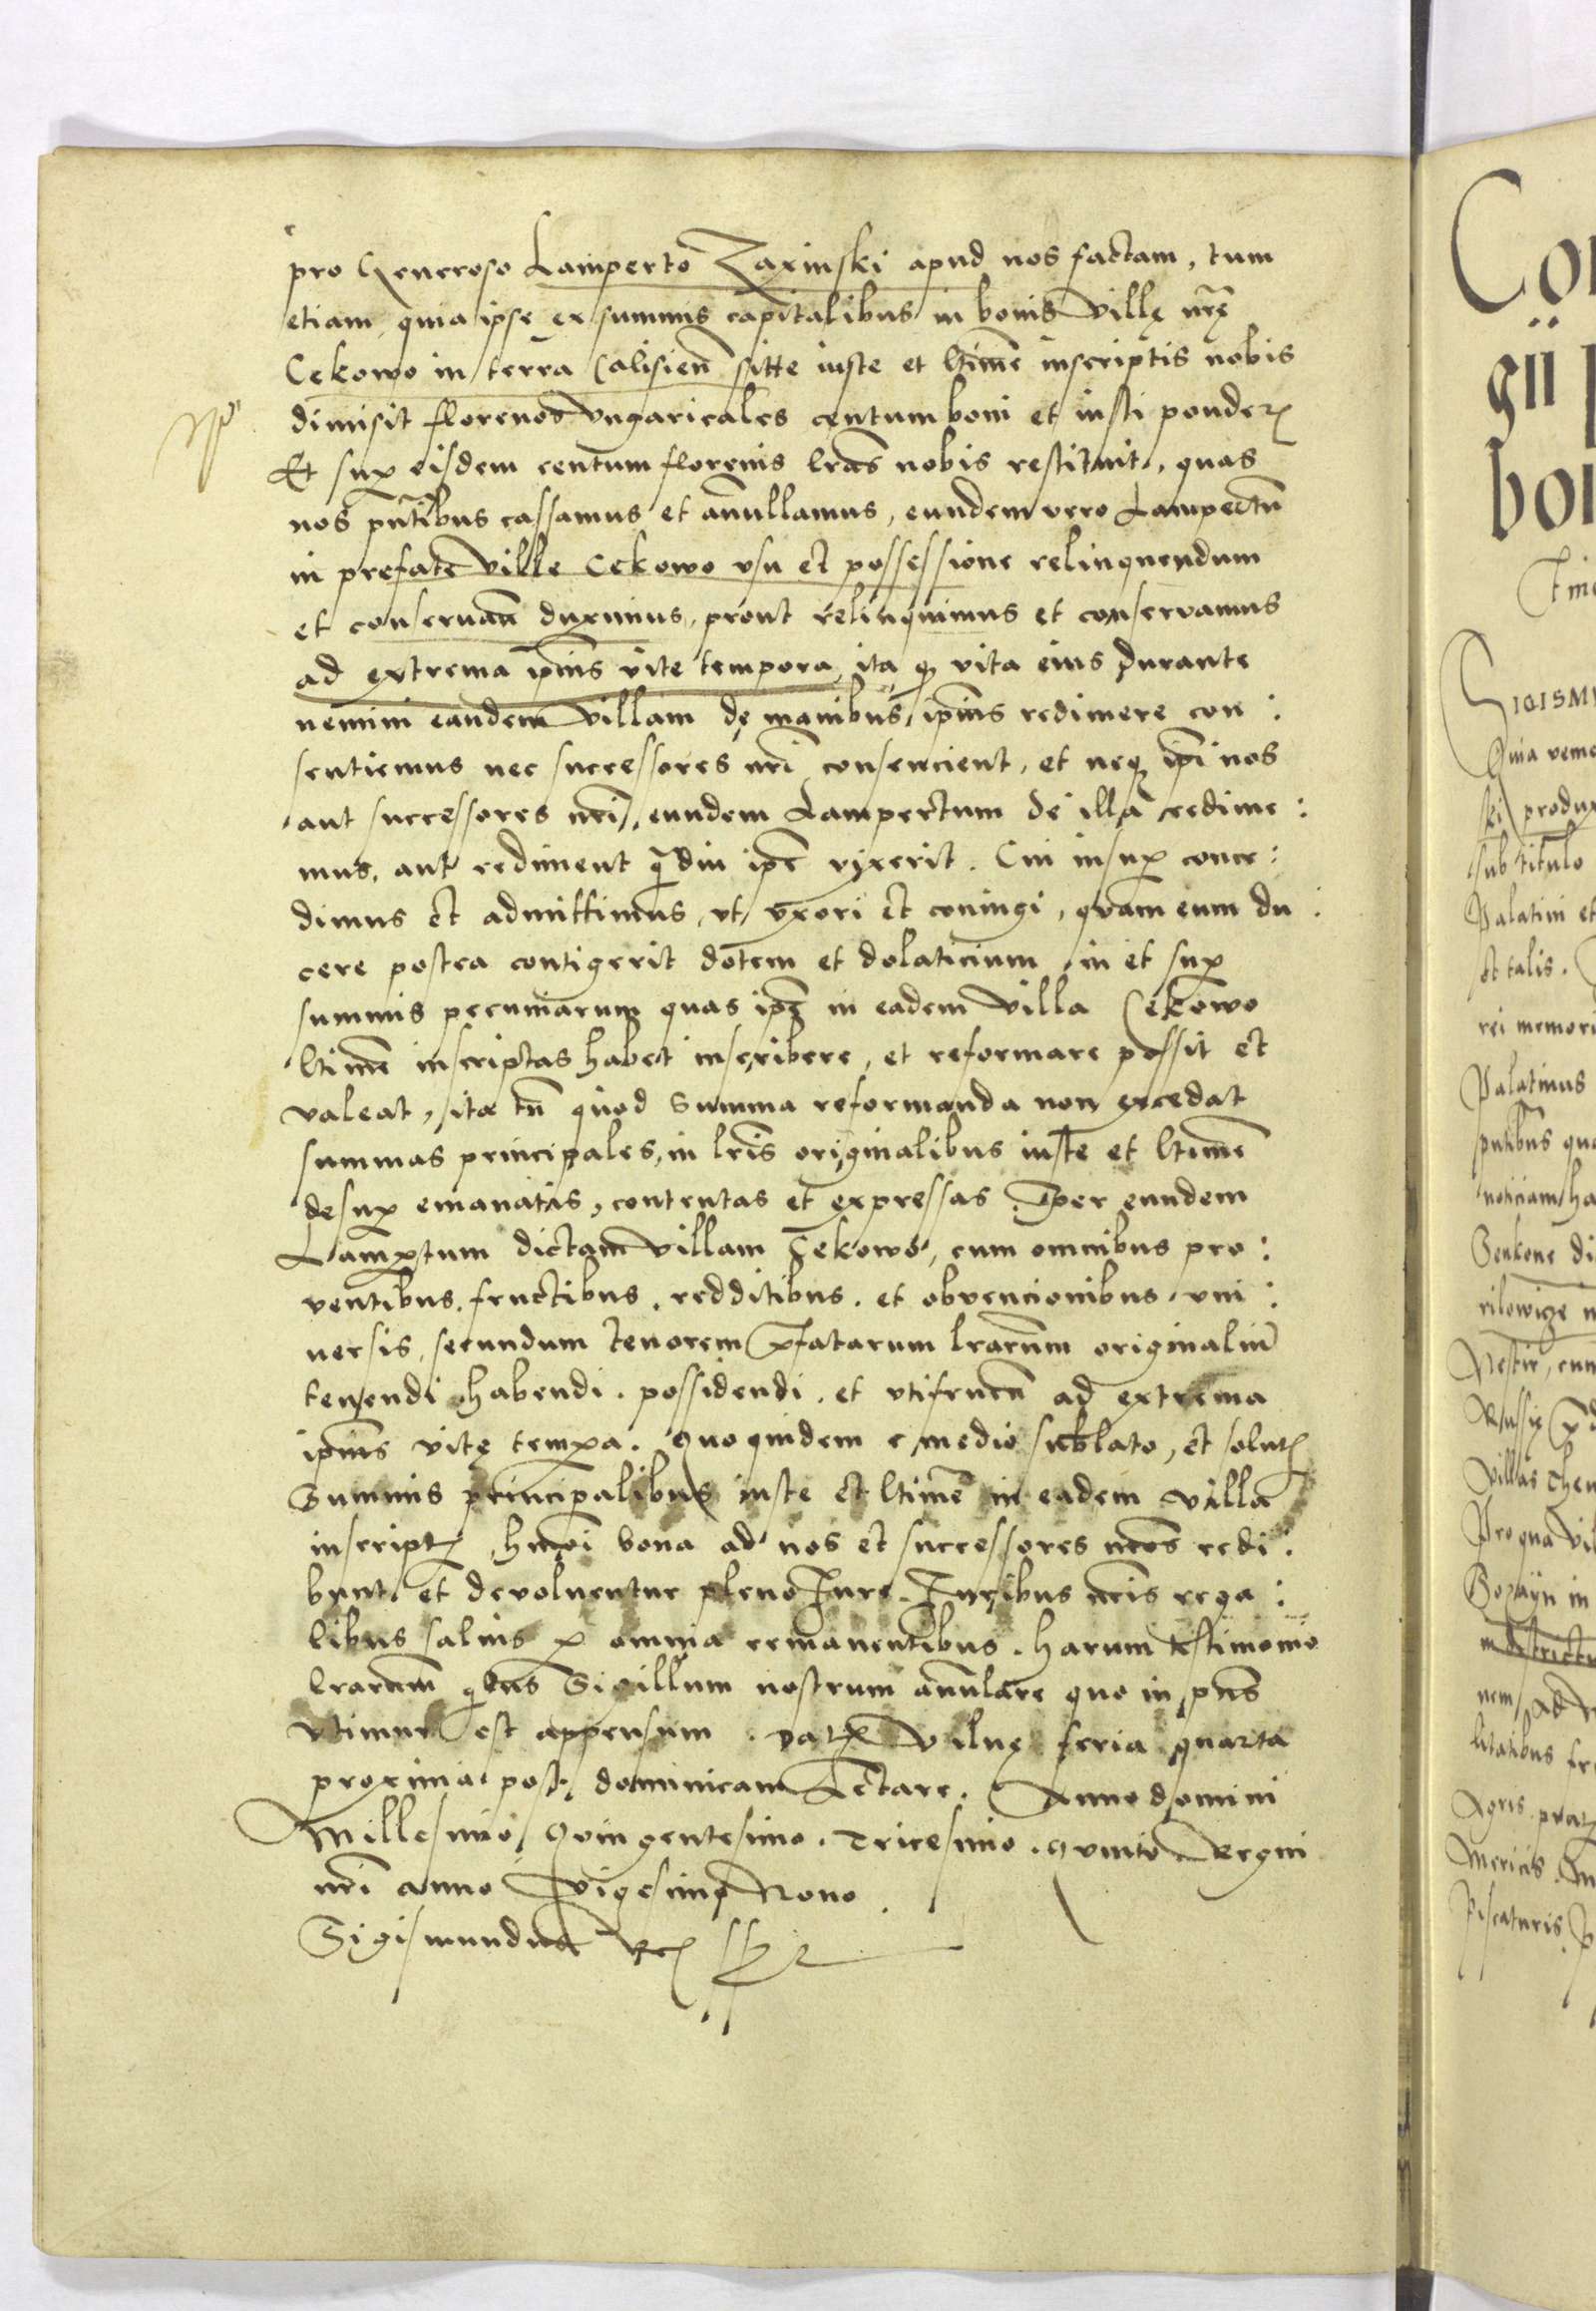 pro Generoso Lamperto Zaxinski apud nos factam, tum
etiam quia ipse ex summis capitalibus in bonis villę nr̄ę
Cekowo in terra Calisien̄ sitte iuste et ltime inscriptis nobis
dimisit florenos vngaricales centum boni et iusti ponderꝭ
Et sup eisdem centum florenis lr̄as nobis restituit, quas
nos pn̄tibus cassamus et an̄ullamus, eundem vero Lampertū
in prefate ville Cekowo vsu et possessione relinquendum
et conseruan̄ duximus, prout relinquimus et conservamus
ad extrema ip̄ius vite tempora, ita ꝙ vita eius durante
nemini eandem villam de manibus ip̄ius redimere con :
sentiemus nec successores nr̄i consencient, et neqꝫ ip̄i nos
aut successores nr̄i, eundem Lampertum de illa redime :
mus, aut rediment q̄diu ip̄e vixerit. Cui insup conce :
dimus et admittimus, vt vxori et coniugi, quam eum du :
cere postea contigerit dotem et dotalicium, in et sup
summis pecuniarum quas ip̄e in eadem villa Cekowo
ltime inscriptas habet inscribere, et reformare possit et
valeat, ita tn̄ quod summa reformanda non excedat
summas principales, in lr̄is originalibus iuste et ltime
desup emanatis, contentas et expressas. Per eundem
Lamptum dictam villam Cekowo, cum omnibus pro :
ventibus. fructibus. redditibus. et obvencionibus vni :
uersis, secundum tenorem p̄fatarum lr̄arum originaliū
tenendi habendi. possidendi. et vtifruen̄ ad extrema
ip̄ius vitę tempa. Quo quidem e medio sublato, et solutꝭ
Summis principalibus iuste et ltime in eadem villa
inscriptꝭ, hmōi bona ad nos et successores nr̄os redi :
bunt et devoluentur pleno Iure. Iuribus nr̄is rega :
libus saluis p omnia remanentibus. Harum testimonio
lr̄arum quibus Sigillum nostrum an̄ulare quo in pn̄s
vtimur est appensum. Datꝭ Vilnę feria quarta
proxima post dominicam Letare. Anno domini
Millesimo Quingentesimo. Tricesimo. Quinto Regni
nr̄i anno Vigesimo Nono.
Sigismundus Rex

SIGISMV
Quia vene
ski produx
sub titulo
Palatini et
et talis.
rei memori
Palatinus
pn̄tibus qu
noticiam ha
Senkone di
Nestir, cum
villas
Pro qua vil
in
nem
litatibus fr
Agris. pratꝭ
Mericis.
Piscaturis.